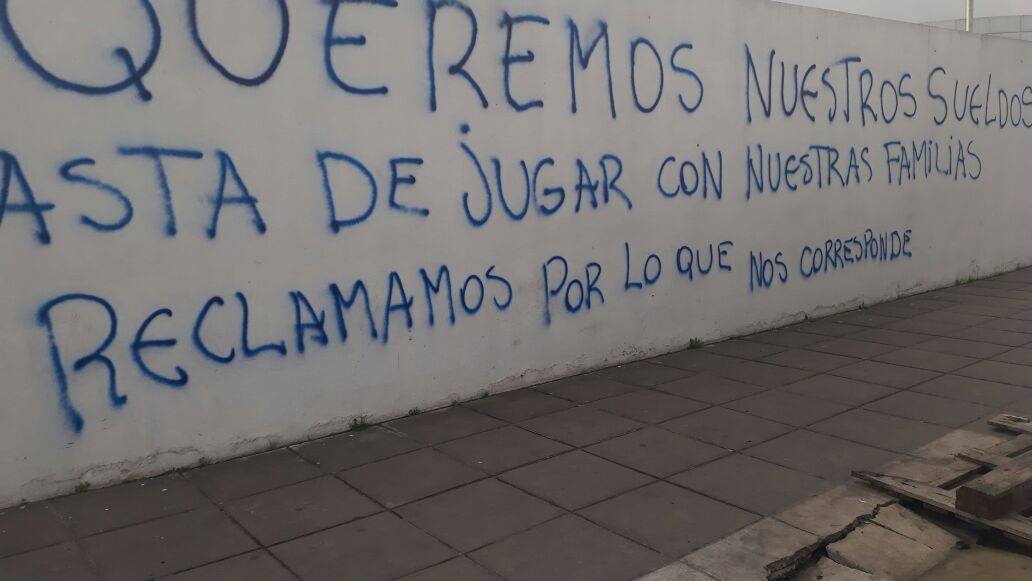 QUEREMOS NUESTROS SUELDOS
ASTA DE JUGAR CON NUESTRAS FAMILIAS
RECLAMAMOS POR LO QUE NOS CORRESPONDE